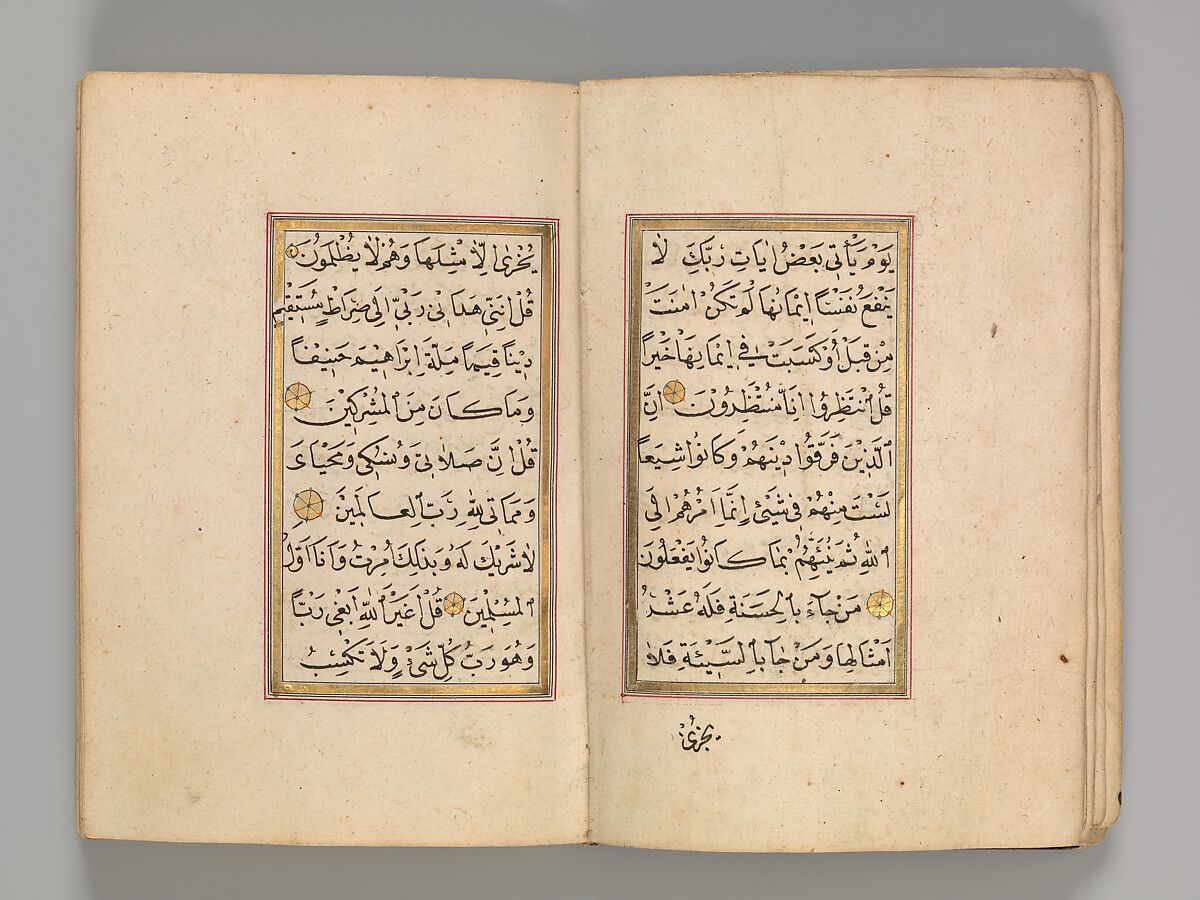 يَوْمَ يَأْتِي بَعْضُ اٰيَاتِ رَبِّكَ لَا
يَنْفَعُ نَفْسًا اِيمَانُهَا لَمْ تَكُنْ اٰمَنَتْ
مِنْ قَبْلُ أَوْ كَسَبَتْ فِي اِيمَانِهَا خَيْرًا
قُلِ انْتَظِرُوا اِنَّا مُنْتَظِرُونَ اِنَّ
الَّذِينَ فَرَّقُوا دِينَهُمْ وَكَانُوا شِيَعًا
لَسْتَ مِنْهُمْ فِي شَيْئٍ اِنَّمَا اَمْرُهُمْ اِلَى
اللهِ ثُمَّ يُنَبِّئُهُمْ بِمَا كَانُوا يَفْعَلُونَ
مَنْ جَآءَ بِالْحَسَنَةِ فَلَهُ عَشْرُ
اَمْثَالِهَا وَمَنْ جَآءَ بِالسَّيِّئَةِ فَلَا
يُجْزَىٰ
يُجْزٰى اِلَّا مِثْلَهَا وَهُمْ لَا يُظْلَمُونَ
قُلْ اِنَّنِي هَدَانِي رَبِّي اِلَى صِرَاطٍ مُسْتَقِيمٍ
دِينًا قِيَمًا مِلَّةَ اِبْرَاهِيمَ حَنِيفًا
وَمَا كَانَ مِنَ الْمُشْرِكِينَ
قُلْ اِنَّ صَلَاتِي وَنُسُكِي وَمَحْيَايَ
وَمَمَاتِي لِلّٰهِ رَبِّ الْعَالَمِينَ
لَا شَرِيكَ لَهُ وَبِذٰلِكَ اُمِرْتُ وَاَنَا اَوَّلُ
الْمُسْلِمِينَ قُلْ اَغَيْرَ اللهِ اَبْغِي رَبًّا
وَهُوَ رَبُّ كُلِّ شَيْءٍ وَلَا تَكْسِبُ